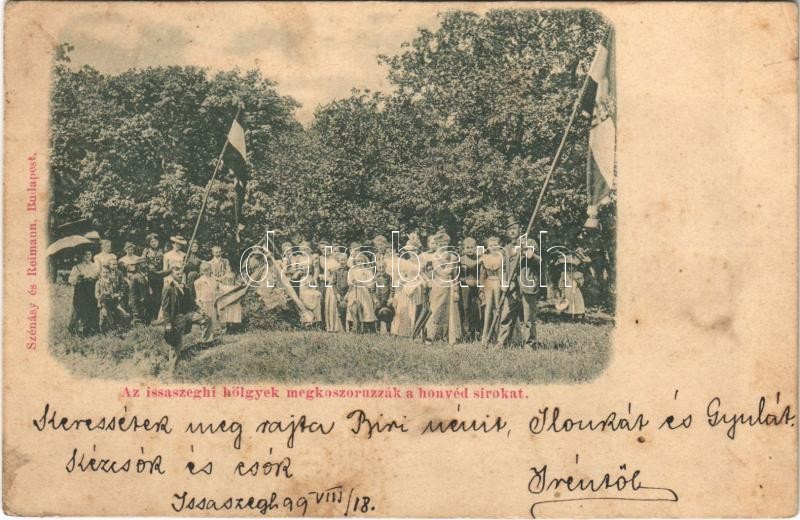 Szénásy és Reimann, Budapest.
darabanth
Az issaszeghi hölgyek megkoszoruzzák a honvéd sirokat.
Keressétek meg rajta Biri nénit, Ilonkát és Gyulát.
Kézcsók és csók
Iréntől
Issaszegh 99 VIII/18.